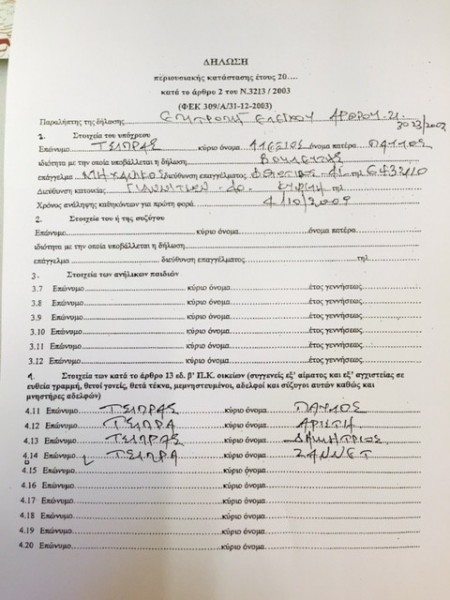 ΔΗΛΩΣΗ
περιουσιακής κατάστασης έτους 20....
κατά το άρθρο 2 του Ν.3213 / 2003
(ΦΕΚ 309/Α/31-12-2003)
Παραλήπτης της δήλωσης ΕΠΙΤΡΟΠΗ ΕΛΕΓΧΟΥ ΑΡΘΡΟΥ 21
3023/2002
1. Στοιχεία του υπόχρεου
Επώνυμο ΤΣΙΠΡΑΣ κύριο όνομα ΑΛΕΞΙΟΣ όνομα πατέρα ΠΑΥΛΟΣ
ιδιότητα με την οποία υποβάλλεται η δήλωση ΒΟΥΛΕΥΤΗΣ
επάγγελμα ΜΗΧΑΝΙΚΟΣ διεύθυνση επαγγέλματος τηλ
Διεύθυνση κατοικίας
Χρόνος ανάληψης καθηκόντων για πρώτη φορά 4/10/2009
2. Στοιχεία του ή της συζύγου
Επώνυμο κύριο όνομα όνομα πατέρα
ιδιότητα με την οποία υποβάλλεται η δήλωση
επάγγελμα διεύθυνση επαγγέλματος τηλ
3. Στοιχεία των ανήλικων παιδιών
3.7 Επώνυμο κύριο όνομα έτος γεννήσεως
3.8 Επώνυμο κύριο όνομα έτος γεννήσεως
3.9 Επώνυμο κύριο όνομα έτος γεννήσεως
3.10 Επώνυμο κύριο όνομα έτος γεννήσεως
3.11 Επώνυμο κύριο όνομα έτος γεννήσεως
3.12 Επώνυμο κύριο όνομα έτος γεννήσεως
4. Στοιχεία των κατά το άρθρο 13 εδ. β' Π.Κ. οικείων (συγγενείς εξ' αίματος και εξ' αγχιστείας σε
ευθεία γραμμή, θετοί γονείς, θετά τέκνα, μεμνηστευμένοι, αδελφοί και σύζυγοι αυτών καθώς και
μνηστήρες αδελφών)
4.11 Επώνυμο ΤΣΙΠΡΑΣ κύριο όνομα ΠΑΥΛΟΣ
4.12 Επώνυμο ΤΣΙΠΡΑ κύριο όνομα ΑΡΙΣΤΗ
4.13 Επώνυμο ΤΣΙΠΡΑΣ κύριο όνομα ΔΗΜΗΤΡΙΟΣ
4.14 Επώνυμο ΤΣΙΠΡΑ κύριο όνομα ΖΑΝΝΕΤ
4.15 Επώνυμο κύριο όνομα
4.16 Επώνυμο κύριο όνομα
4.17 Επώνυμο κύριο όνομα
4.18 Επώνυμο κύριο όνομα
4.19 Επώνυμο κύριο όνομα
4.20 Επώνυμο κύριο όνομα